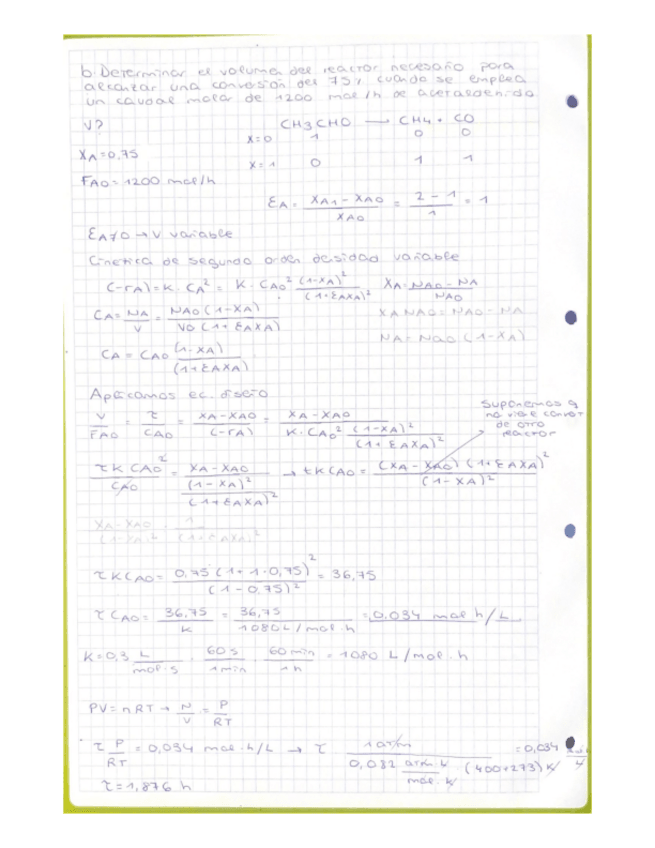 b. Determinar el volumen del reactor necesario para
alcanzar una conversión del 75% cuando se emplea
un caudal molar de 1200 mol/h de acetaldehido
V?
CH3CHO → CH4 + CO
X=0 1 0 0
XA=0,75
X=1 0 1 1
FA0=1200 mol/h
εA = (XA1 - XA0)/XA0 = (2-1)/1 = 1
εA≠0 → V variable
Cinetica de segundo orden desidad variable
(-rA)=K·CA² = K·CA0² (1-XA)²/(1+εAXA)² XA=(NA0-NA)/NA0
CA=NA/V = NA0(1-XA)/V0(1+εAXA) XA NA0=NA0-NA
NA=NA0(1-XA)
CA = CA0 (1-XA)/(1+εAXA)
Aplicamos ec. diseño
V/FA0 = τ/CA0 = (XA-XA0)/(-rA) = (XA-XA0)/(K·CA0² (1-XA)²/(1+εAXA)²)
Suponemos q
no viene
de otro
reactor
τK CA0²/CA0 = (XA-XA0)/((1-XA)²/(1+εAXA)²) → τKCA0 = (XA-XA0)(1+εAXA)²/(1-XA)²
XA-XA0/(1-XA)² · 1/(1+εAXA)²
τKCA0 = 0,75(1+1·0,75)²/(1-0,75)² = 36,75
τCA0 = 36,75/K = 36,75/1080L/mol·h = 0,034 mol h/L
K=0,3 L/mol·s · 60s/1min · 60min/1h = 1080 L/mol·h
PV=nRT → N/V = P/RT
τ P/RT = 0,034 mol·h/L → τ 1atm/(0,082 atm L/mol·K (400+273)K) = 0,034
τ=1,876 h